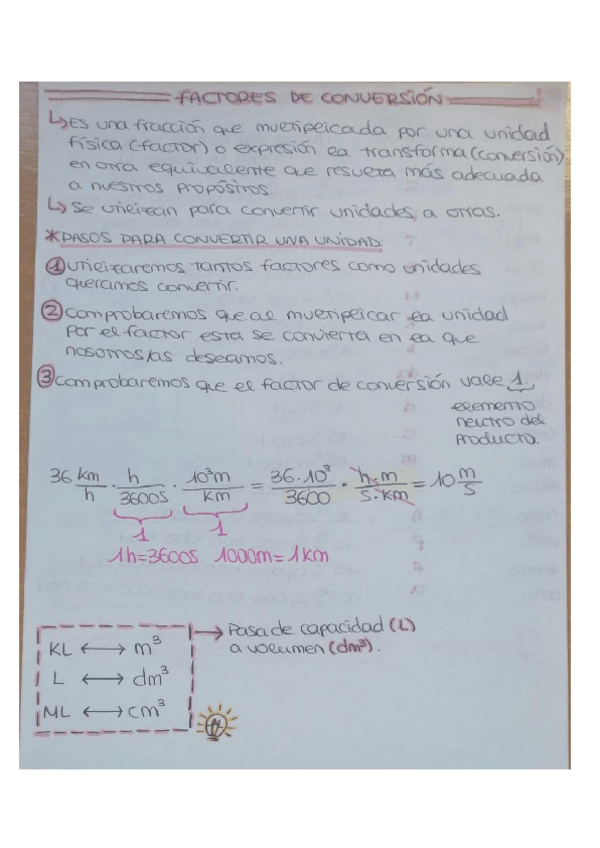 FACTORES DE CONVERSIÓN
↳ Es una fracción que multiplicada por una unidad
física (factor) o expresión la transforma (conversión)
en otra equivalente que resulta más adecuada
a nuestros propósitos.
↳ Se utilizan para convertir unidades, a otras.
* PASOS PARA CONVERTIR UNA UNIDAD
① Utilizaremos tantos factores como unidades
queramos convertir.
② Comprobaremos que al multiplicar la unidad
por el factor esta se convierta en la que
nosotros/as deseamos.
③ Comprobaremos que el factor de conversión vale 1.
elemento
neutro del
producto.
36 km/h · h/3600s · 10³m/km = 36·10³/3600 · h·m/s·km = 10 m/s
1 1
1h=3600s 1000m=1km
→ Pasa de capacidad (L)
a volumen (dm³).
KL ↔ m³
L ↔ dm³
ML ↔ cm³